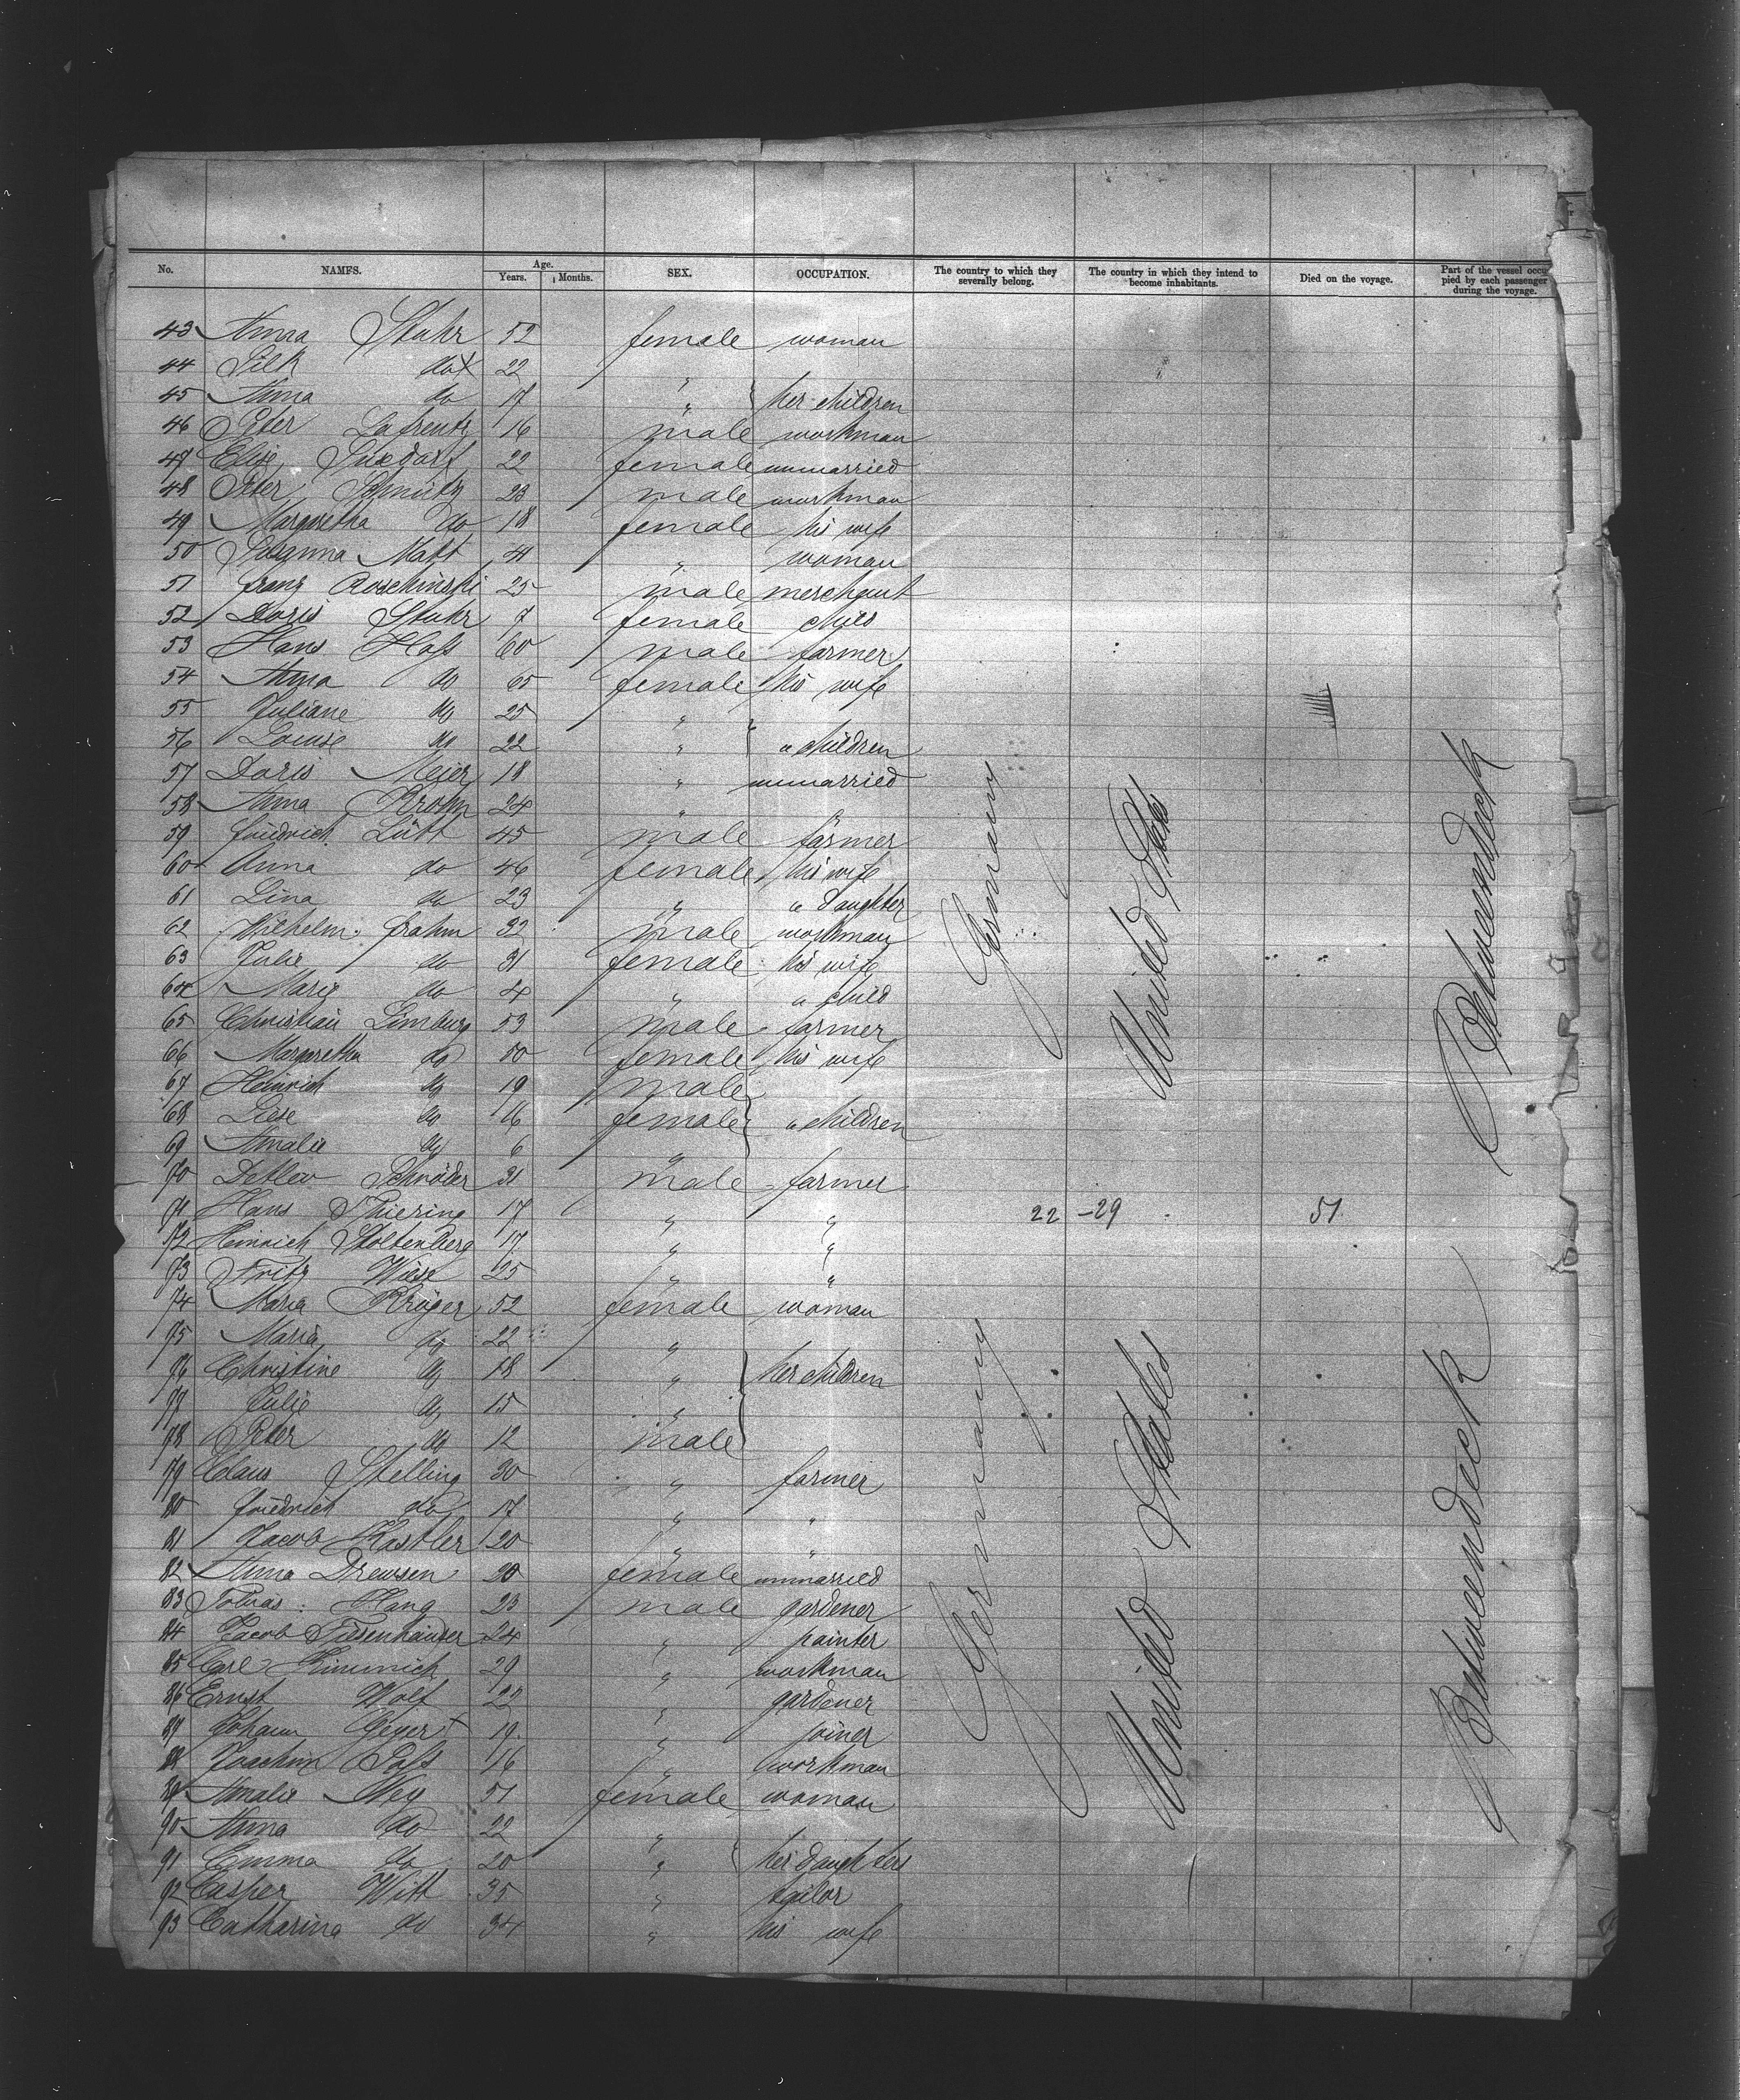 No. NAMES. Age. Years. Months. SEX. OCCUPATION. The country to which they severally belong. The country in which they intend to become inhabitants. Died on the voyage. Part of the vessel occupied by each passenger during the voyage.
43 Anna Stuhr 52 female woman
44 Silk do x 22 "
45 Anna do 17 " her children
46 Peter Lafrentz 16 male workman
47 Elise Suxdorf 22 female unmarried
48 Peter 23 male workman
49 Margaretha do 18 female his wife
50 Susanna 41 " woman
51 Franz Roschinski 25 male merchant
52 Doris Stuhr 7 female child
53 Hans Hass 60 male farmer
54 Anna do 65 female his wife
55 Juliane do 25 "
56 Louise do 22 " " children
57 Doris Meier 18 " unmarried
58 Anna Krohn 24 "
59 Friedrich Lütt 45 male farmer
60 Anna do 46 female his wife
61 Lina do 23 " " daughter
62 Wilhelm Frahm 32 male workman
63 Julie do 31 female his wife
64 Marie do 4 " " child
65 Christian Limburg 53 male farmer
66 Margaretha do 50 female his wife
67 Heinrich do 19 male
68 Liese do 16 female " children
69 Amalie do 6 "
70 Detlev Schröder 31 male farmer
71 Hans Thiering 17 " " 22 - 29 51
72 Heinrich Stoltenberg 17 " "
73 Fritz Wiese 25 " "
74 Maria Krüger 52 female woman
75 Maria do 22 "
76 Christine do 18 " her children
77 Julie do 15 "
78 Peter do 12 male
79 Claus Stelling 30 " farmer
80 Friedrich do 17 " "
81 Jacob Kastler 20 " "
82 Anna Drewsen 20 female unmarried
83 Tobias Hang 23 male gardener
84 Jacob Tiesenhauser 24 " painter
85 Carl Kimmich 29 " workman
86 Ernst Wolf 22 " gardener
87 Johann Geyer x 19 " joiner
88 Joachim 16 " workman
89 Amalie Mey 51 female woman
90 Anna do 22 "
91 Emma do 20 " her daughters
92 Casper Witt 35 " tailor
93 Catharina do 34 " his wife
Germany
United States
Betweendeck
Germany
United States
Betweendeck